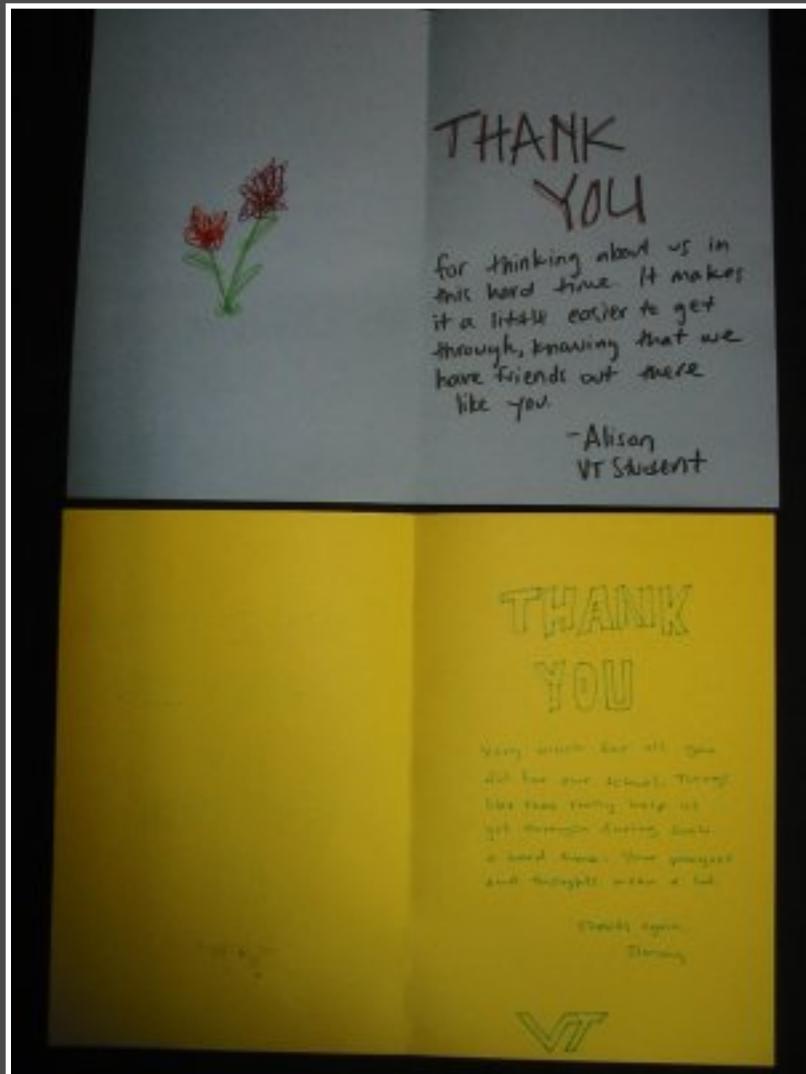 THANK
YOU
for thinking about us in
this hard time. It makes
it a little easier to get
through, knowing that we
have friends out there
like you.
-Alison
VT Student
THANK
YOU
Very much for all you
did for our school. Things
like this really help us
get through during such
a hard time. Your prayers
and thoughts mean a lot.
Thanks again,
VT